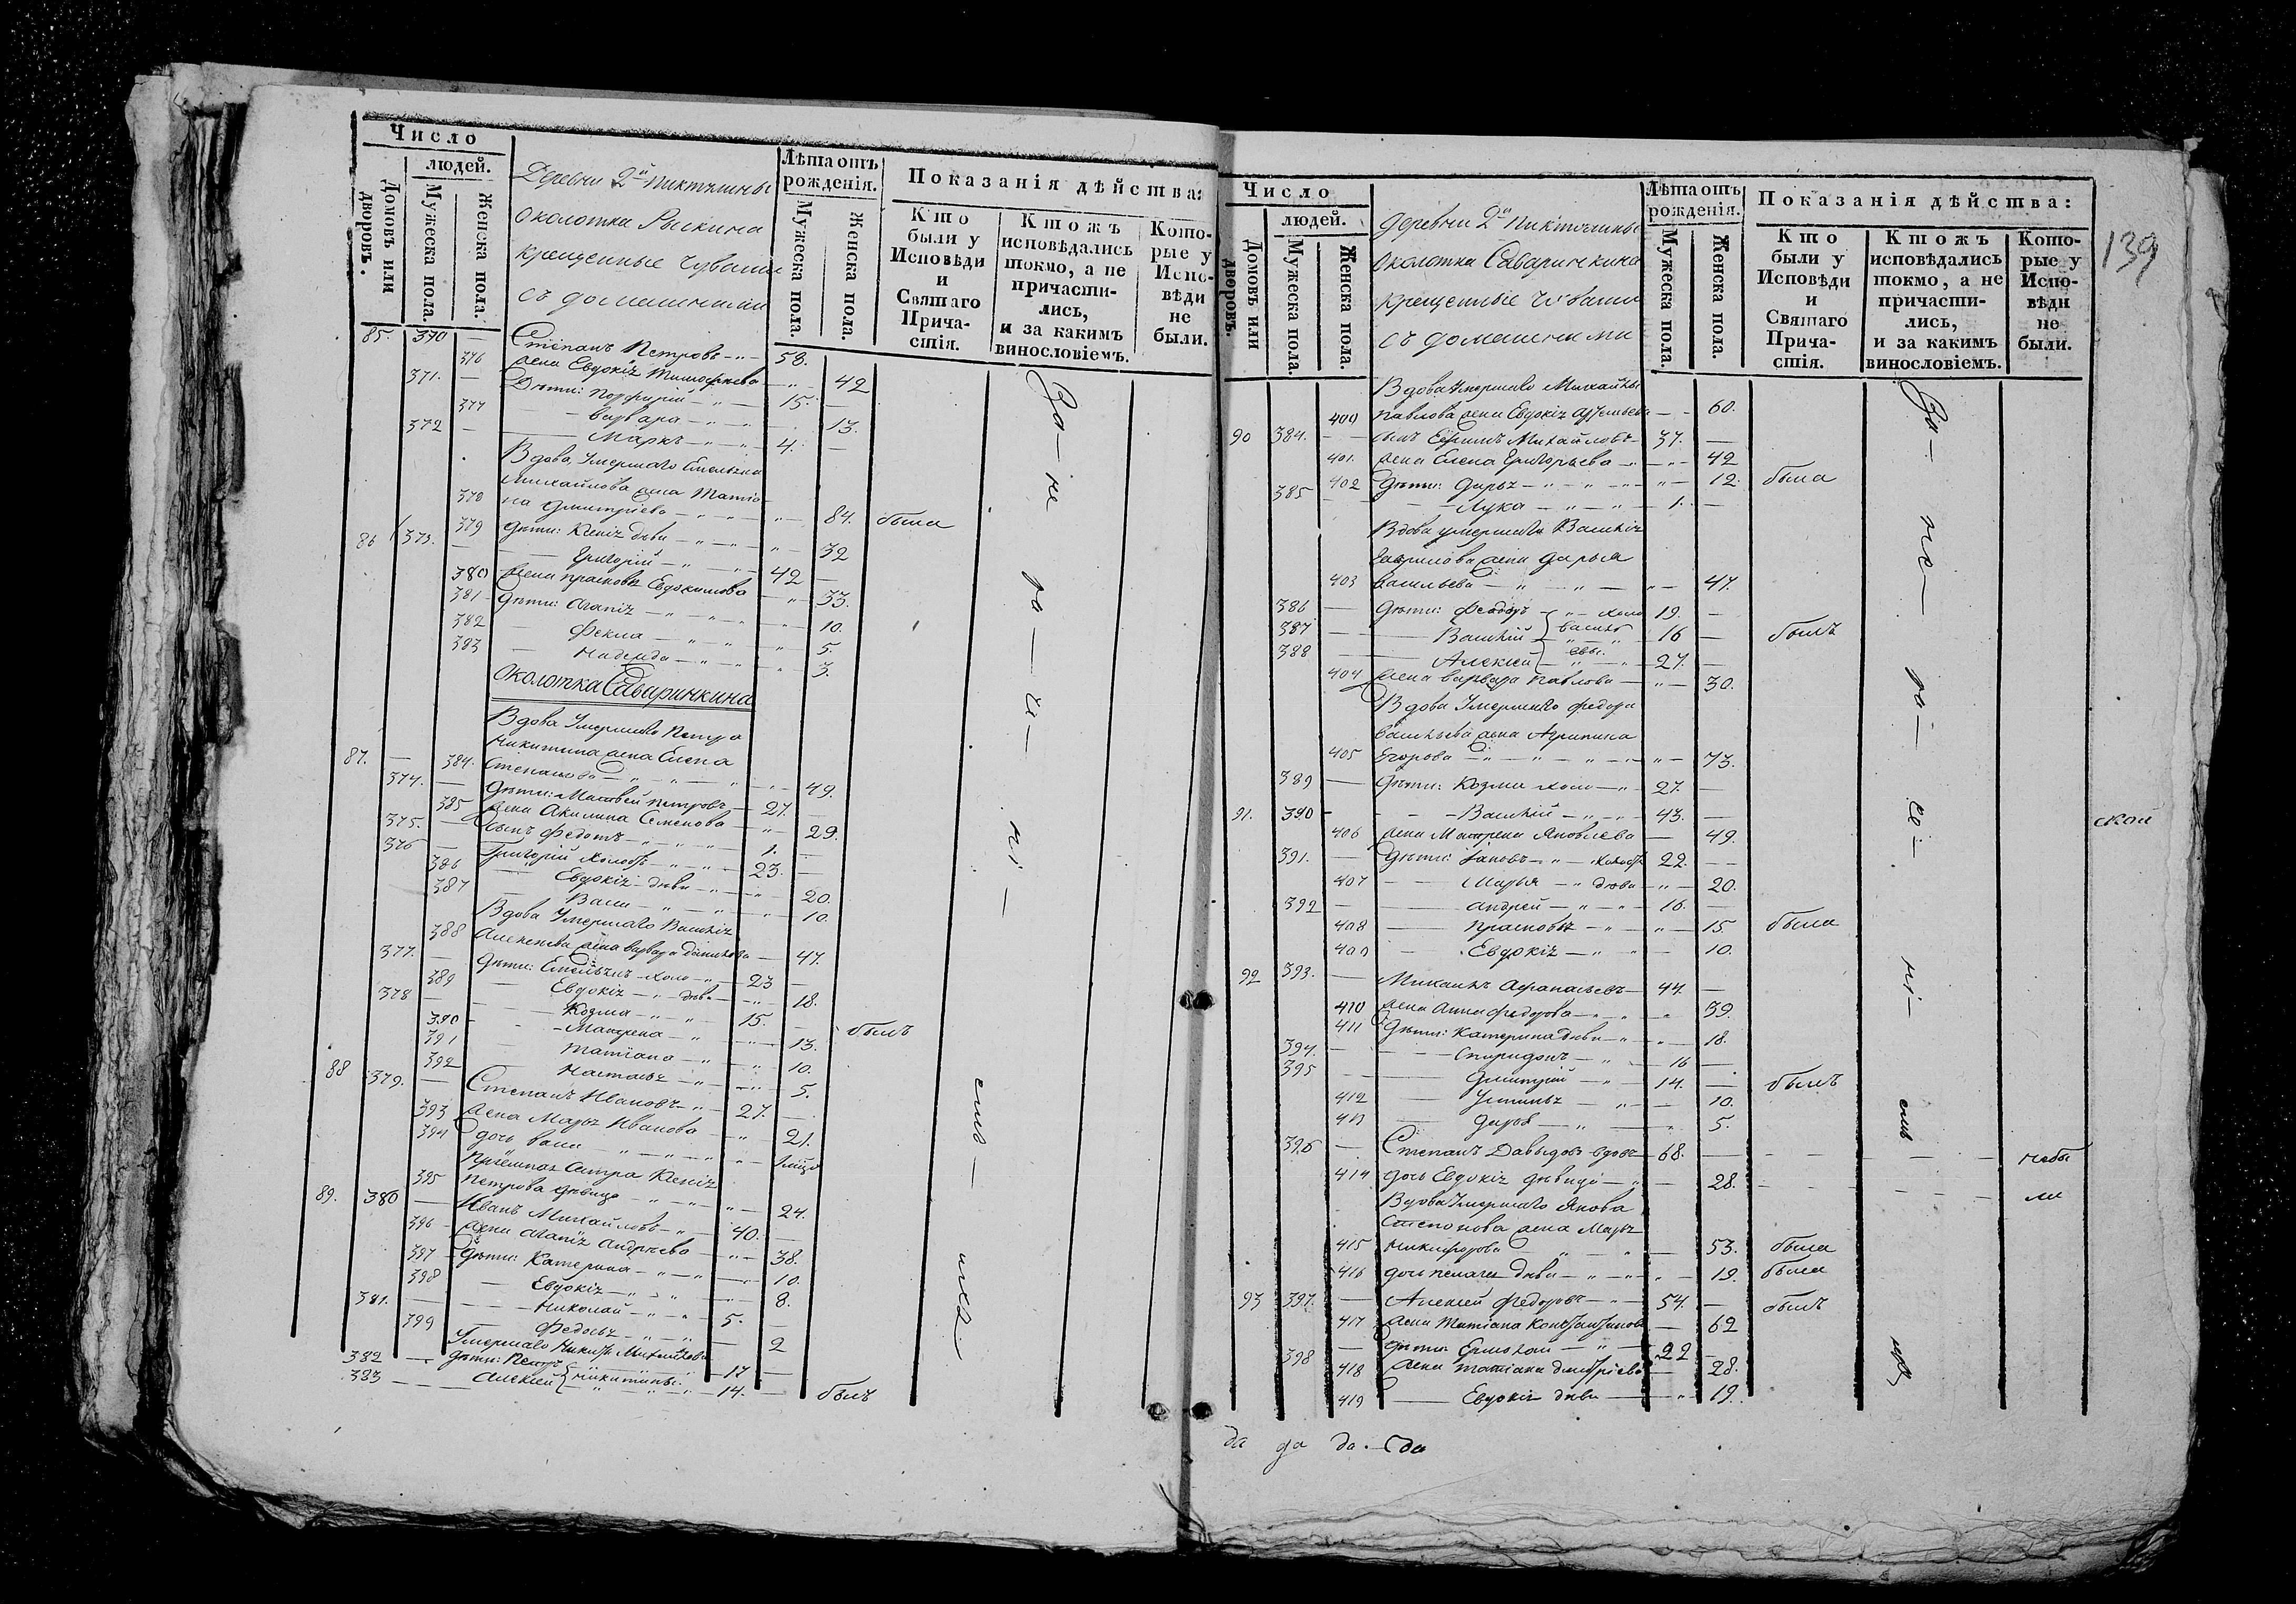 Число
людей.
Домовъ или дворовъ.
Мужеска пола.
Женска пола.
Деревни 2й Пиктулины
околотка Рыскина
крещенные чуваши
съ домашними
Лѣта отъ рожденія.
Мужеска пола.
Женска пола.
Показанія дѣйства:
Кто были у Исповѣди и Святаго Причастія.
Ктожъ исповѣдались токмо, а не причастились, и за какимъ винословіемъ.
Которые у Исповѣди не были.
85. 370 — Степанъ Петровъ 58.
376 жена Евдокія Тимофѣева 42
371. — Дѣти: Порфирій 15.
377 Варвара 13.
372 — Маркъ 4.
Вдова Умершаго Емельяна
Михайлова жена Татіа-
378 на Дмитріева 84. была
379 Дѣти: Ксенія дѣви 32
86 373. Григорій 42
380 жена Прасковья Евдокимова 33.
381 Дѣти: Агапія 10.
382 Фекла 5.
383 Надежда 3.
Околотка Саваринкина
Вдова Умершаго Петра
Никитина жена Елена
87. — 384. Степанова 49.
374. — Дѣти: Матвей Петровъ 27.
385 жена Акилина Семенова 29.
375. — сынъ Федотъ 1.
376 — Григорій холостъ 23.
386 Евдокія дѣви 20.
387 Васи 10.
Вдова Умершаго Василія
388 Алексѣева жена Варвара 47.
377. — Дѣти: Емельянъ холо 23
389 Евдокія дѣви 18.
378 — Козма 15.
390 Матрена 13. былъ
391 Татіана 10.
392 Настасья 5.
88 379. — Степанъ Ивановъ 27.
393 жена Марья Иванова 21.
394 дочь Васи
Пріемная Сестра Ксенія
395 Петрова дѣвица 24.
89. 380 — Иванъ Михайловъ 40.
396 жена Агапія Андреева 38.
397 Дѣти: Катерина 10.
398 Евдокія 8.
381. — Николай 5.
399 Федосья 2
Умершаго Никиты Михайлова
382 — дѣти: Петръ 17
383 — Алексей Никитины. 14. былъ
За — не — го — ве — ні — емъ — ихъ
Число
людей.
Домовъ или дворовъ.
Мужеска пола.
Женска пола.
Деревни 2й Пиктулины
околотка Саваринкина
крещенные чуваши
съ домашними
Лѣта отъ рожденія.
Мужеска пола.
Женска пола.
Показанія дѣйства:
Кто были у Исповѣди и Святаго Причастія.
Ктожъ исповѣдались токмо, а не причастились, и за какимъ винословіемъ.
Которые у Исповѣди не были.
139
Вдова Умершаго Михайлы
400 Павлова жена Евдокія Артемьева 60.
90 384. — сынъ Ефимъ Михайловъ 37.
401. жена Елена Григорьева 42
402 Дѣти: Дарья 12. была
385 — Лука 1.
Вдова умершаго Василія
Гаврилова жена Дарья
403 Васильева 47.
386 — Дѣти: Феодоръ холо 19.
387 — Василій 16 былъ
388 — Алексей 27.
404 жена Варвара Павлова 30.
Вдова Умершаго Федора
Васильева жена Агрипина
405 Егорова 73.
389 — Дѣти: Козма холо 27.
91. 390 — Василій 43.
406 жена Матрена Яковлева 49.
391. — Дѣти: Іаковъ холостъ 22.
407 Марья дѣви 20.
392 — Андрей 16.
408 Прасковья 15 была
409 Евдокія 10.
92 393. — Михаилъ Афанасьевъ 44.
410 жена Анна Федорова 39.
411 Дѣти: Катерина дѣви 18.
394. — Спиридонъ 16
395 — Дмитрій 14. былъ
412 Устинья 10.
413 Дарья 5.
396 — Степанъ Давыдовъ вдовъ 68. небы
414 дочь Евдокія дѣвица 28. ли
Вдова Умершаго Якова
Степанова жена Марья
415 Никифорова 53. была
416 дочь Пелагея дѣви 19. была
93 397. — Алексей Федоровъ 54. былъ
417 жена Татіана Константинова 62
398 — Дѣти: Ермолай 22
418 жена Татіана Дмитріева 28.
419 Евдокія дѣви 19.
За — не — го — ве — ні — емъ
ской
да да да. да